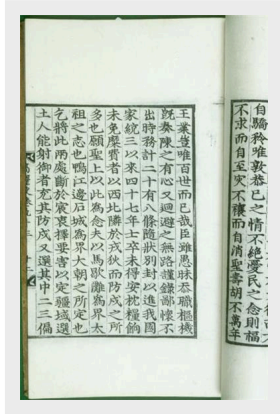 自驕矜唯敦恭己之情不絶憂民之念則福
不求而自至灾不禳而自消聖壽胡不萬年
王業豈唯百世而已哉臣雖愚昧忝職樞機
既奏陳之有心又迴避之無路謹錄鄙懷不
出時務計二十有八條隨狀別封以進我國
家統三以來四十七年士卒未得安枕糧餉
未免糜費者以西北隣於戎狄而防戍之所
多也願聖上以此爲念夫以馬歇灘爲界太
祖之志也鴨江邊石城爲界大朝之所定也
乞將此兩處斷於宸衷擇要害以定疆域選
土人能射御者充其防戍又選其中二三偏